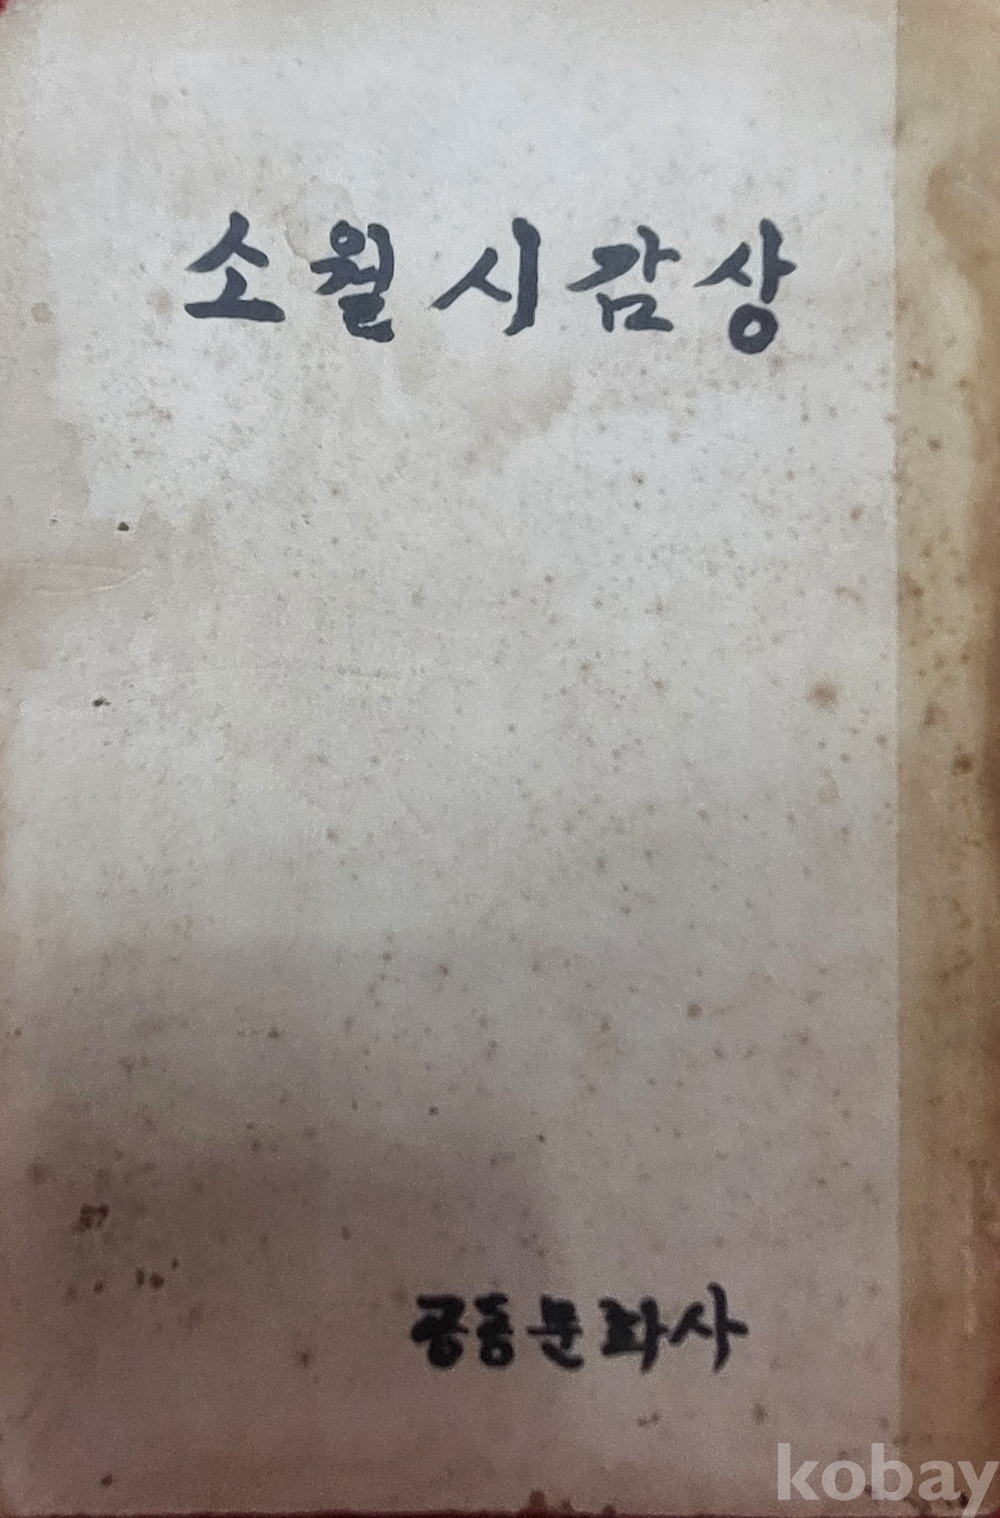 소월 시 감상
공동문화사
kobay